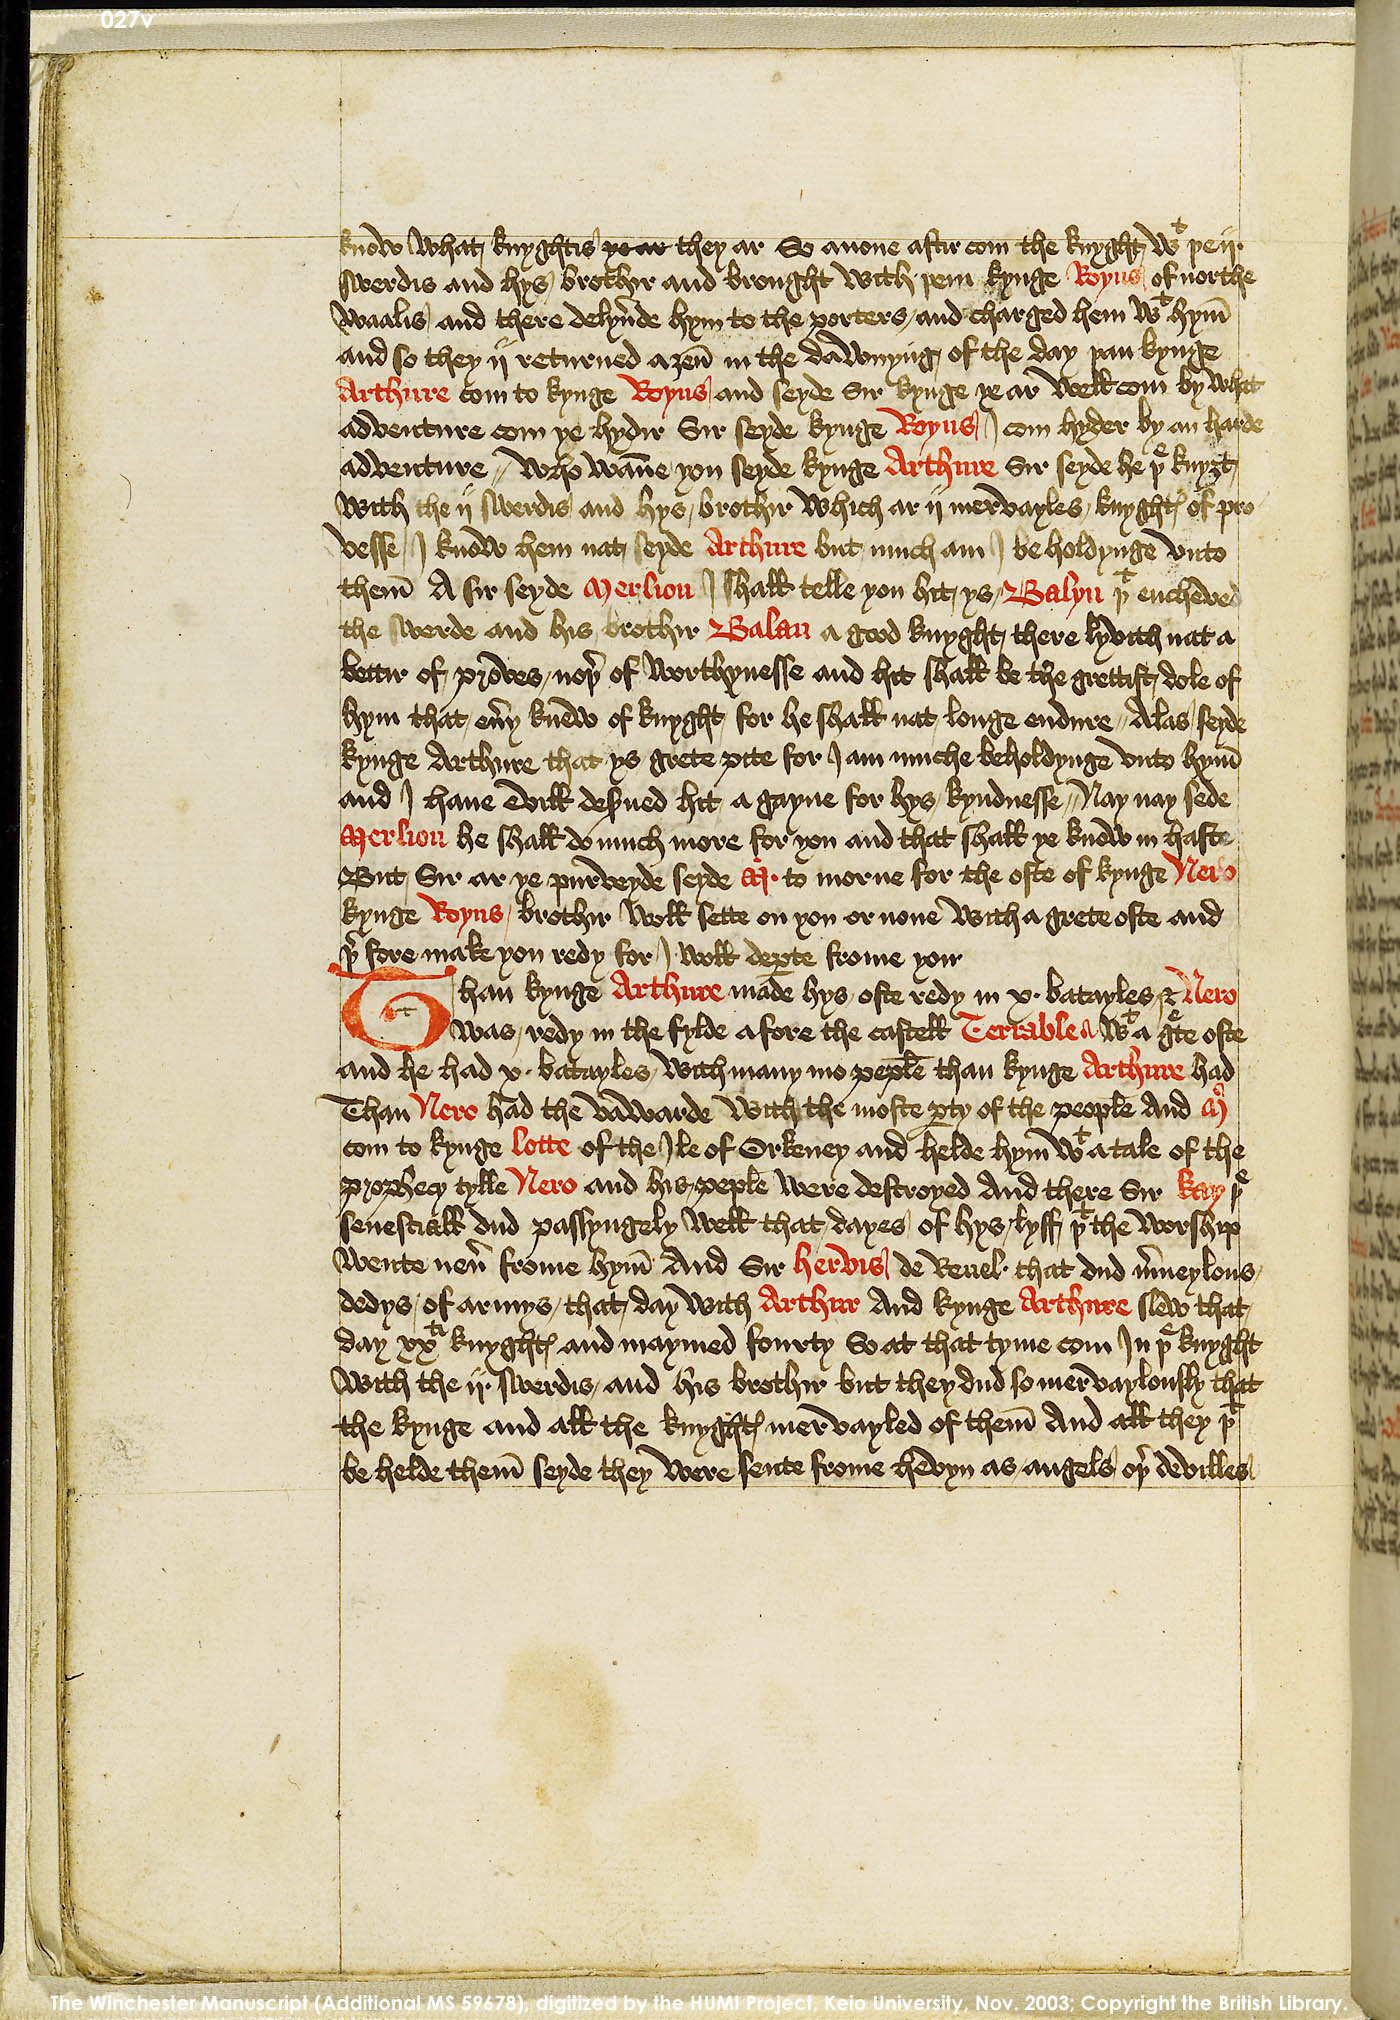 027v
know what knyghtis ye ar they ar So anone aftir com the knyght wᵗ þe ij
swerdis and hys brothir and brought with þem kynge Royns of northe
Waalis and there delyu̾de hym to the porters and charged hem wᵗ hym̄
and so they ij returned aȝen̄ in the dawnyng of the day þan kynge
Arthure com to kynge Royns and seyde Sir kynge ye ar well com by what
adventure com ye hydir Sir seyde kynge Royns I com hyder by an harde
adventure // who wan̄e you seyde kynge Arthure Sir seyde he þᵉ knyȝt
with the ij swerdis and hys brothir which ar ij mervayles knyghtꝭ of pro
vesse I know hem nat seyde Arthure but much am I be holdynge vnto
them̄ A sir seyde Merlion I shall telle you hit ys Balyn þᵗ encheved
the swerde and his brothir Balan a good knyght there lyvith nat a
bettir of proves noþ̾ of worthynesse and hit shall be the grettist dole of
hym that eu̾y knew of knyght for he shall nat longe endure // Alas seyde
kynge Arthure that ys grete pite for I am muche beholdynge vnto hym̄
and I haue evill des̾ued hit a gayne for hys kyndnesse // Nay nay sede
Merlion he shall do much more for you and that shall ye know in haste
But Sir ar ye purveyde seyde M̾· to morne for the oste of kynge Nero
kynge Royns brothir woll sette on you or none with a grete oste and
þ̾ fore make you redy for I woll deꝑte frome you
Than kynge Arthure made hys oste redy in x· batayles & Nero
was redy in the fylde afore the castell Terrable wᵗ a gᵉte oste
and he had x· batayles with many mo peple than kynge Arthure had
Than Nero had the vawarde with the moste ꝑty of the people And M̾
com to kynge lotte of the Ile of Orkeney and helde hym̄ wᵗ a tale of the
prophecy tylle Nero and his peple were destroyed And there Sir kay þᵉ
senesciall dud passyngely well that dayes of hys lyff þᵗ the worship
wente neu̾ frome hym̄ And Sir hervis de Reuel· that dud m̾ueylous
dedys of armys that day with Arthur And kynge Arthure slew that
day xxᵗⁱ knyghtꝭ and maymed fourty So at that tyme com In þᵉ knyght
with the ij· swerdis and his brothir but they dud so mervaylously that
the kynge and all the knyghtꝭ mervayled of them̄ And all they þᵗ
be helde them̄ seyde they were sente frome hevyn as angels oþ̾ devilles
The Winchester Manuscript (Additional MS 59678), digitized by the HUMI Project, Keio University, Nov. 2003; Copyright the British Library.